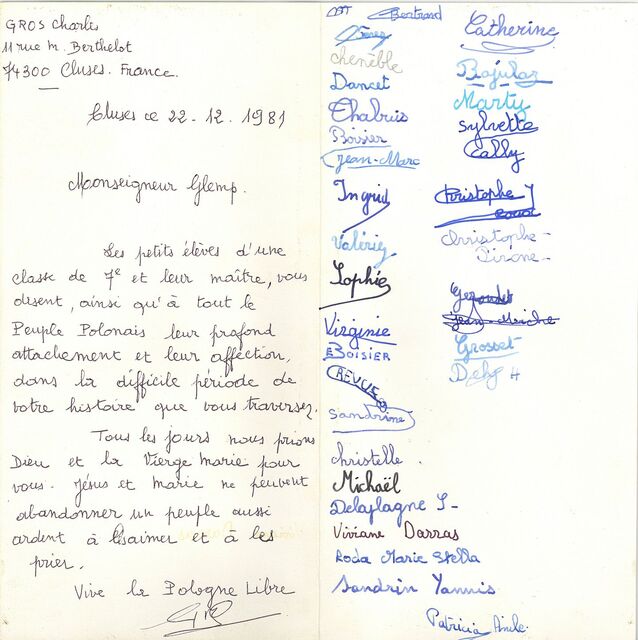 GROS Charles
11 rue M. Berthelot
74300 Cluses. France.
Cluses ce 22.12.1981
Monseigneur Glemp.
Les petits élèves d'une
classe de 7e et leur maître, vous
disent, ainsi qu'à tout le
Peuple Polonais leur profond
attachement et leur affection,
dans la difficile période de
votre histoire que vous traversez.
Tous les jours nous prions
Dieu et la Vierge Marie pour
vous. Jésus et Marie ne peuvent
abandonner un peuple aussi
ardent à les aimer et à les
prier.
Vive la Pologne Libre
Bertrand
chenèble
Dancet
Chabuis
Boisier
Jean-Marc
Ingrid
Valérie
Sophie
Virginie
BOISIER
CREVUE
Sandrine
christelle
Michaël
Delaplagne S-
Viviane Darras
Roda Marie Stella
Sandrin Yannis
Patricia
Catherine
Bajulaz
Marty
Sylvette
Cally
Christophe J
Christophe-
Pirone-
Grosset